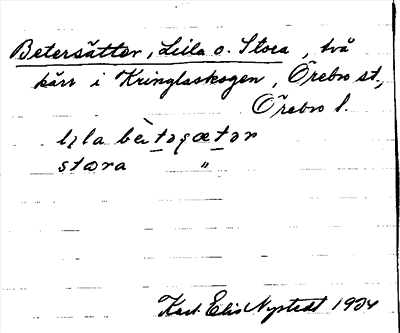 Betersätter, Lilla o. Stora, två
kärr i Kringlaskogen, Örebro st,
Örebro l.
lɩla bètəṣætər
stora "
Karl Elis Nystedt 1904